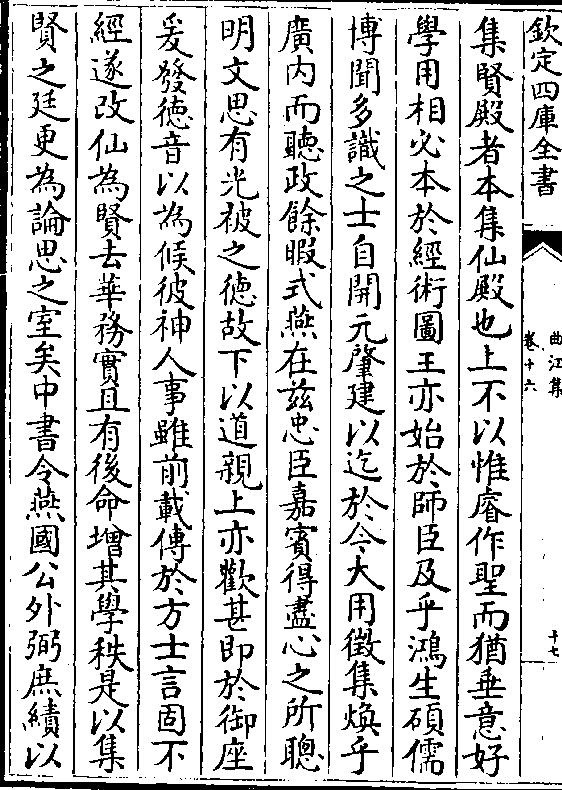 欽定四庫全書
曲江集
卷十六
十七
集賢殿者本集仙殿也上不以惟睿作聖而猶垂意好
學用相必本於經術圖王亦始於師臣及乎鴻生碩儒
博聞多識之士自開元肇建以迄於今大用徵集煥乎
廣內而聽政餘暇式燕在兹忠臣嘉賓得盡心之所聰
明文思有光被之德故下以道親上亦歡甚即於御座
爰發德音以為候彼神人事雖前載傳於方士言固不
經遂改仙為賢去華務實且有後命增其學秩是以集
賢之廷更為論思之室矣中書令燕國公外弼庶績以